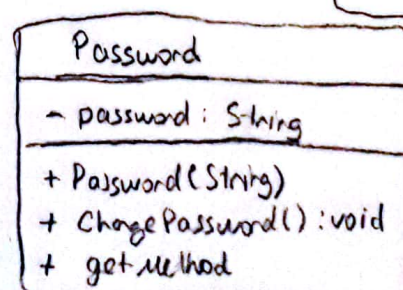 Password
- password : String
+ Password(String)
+ ChangePassword() : void
+ getMethod